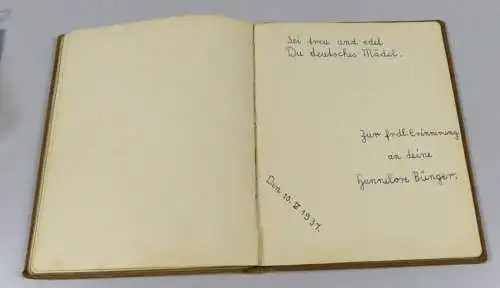 Sei treu und edel
Du deutsches Mädel.
Zur frdl. Erinnerung
an deine
Hannelore Bünger.
Den 10. V 1937.